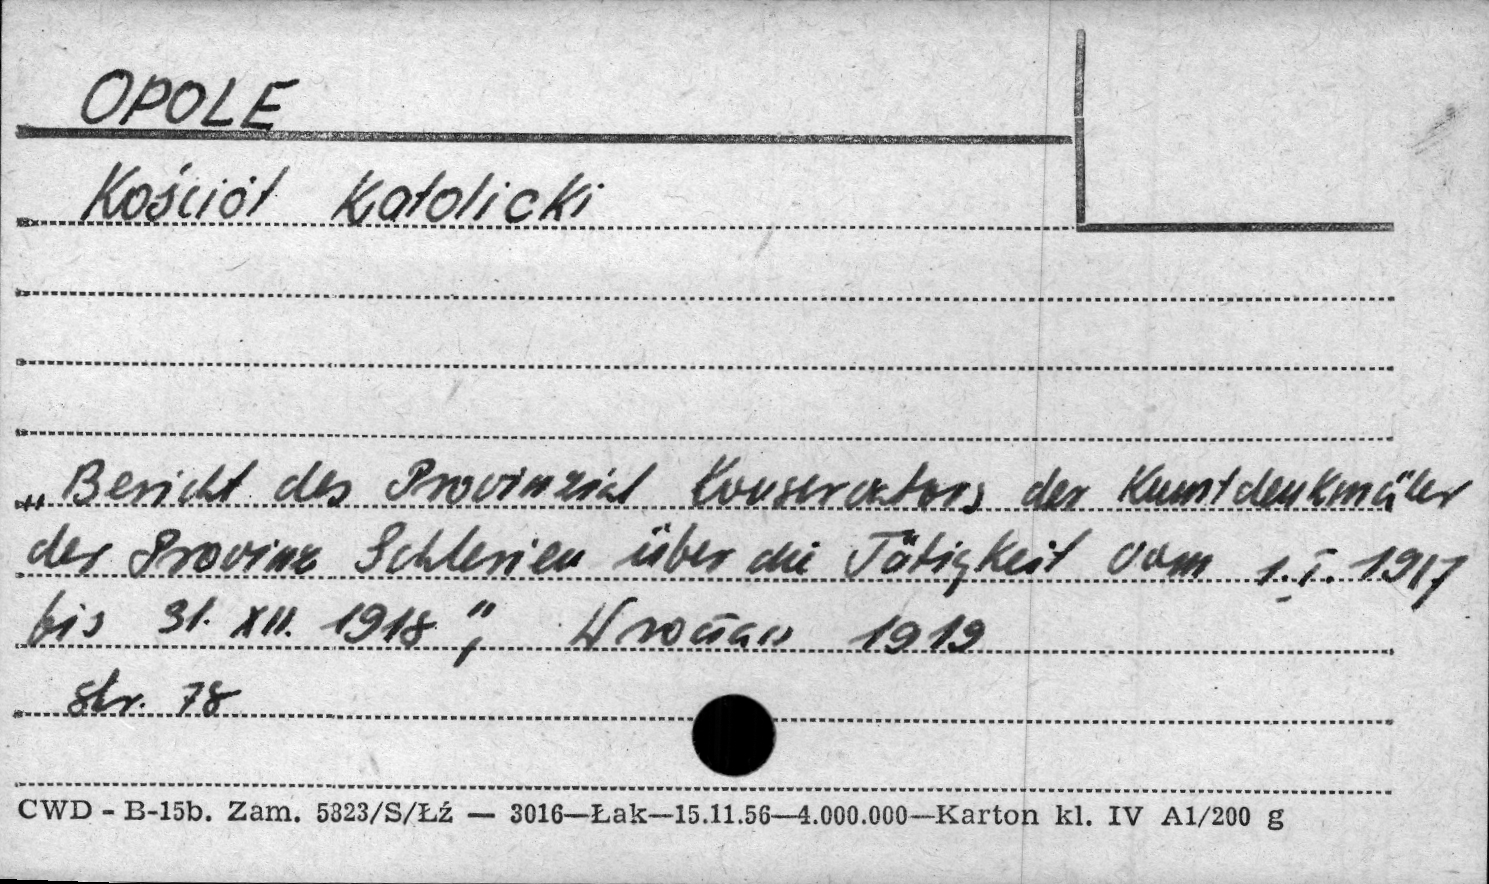 OPOLE
Kościół Katolicki
„Bericht des Provinzial Konservators der Kunstdenkmäler
der Provinz Schlesien über die Tätigkeit vom 1.I.1917
bis 31.XII.1918", Wrocław 1919
str. 78
CWD - B-15b. Zam. 5823/S/Łź — 3016—Łak—15.11.56—4.000.000—Karton kl. IV A1/200 g